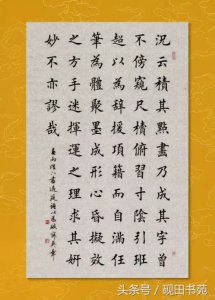 況云積其點畫乃成其字曾
不傍窺尺牘俯習寸陰引班
超以為辭援項籍而自滿任
筆為體聚墨成形心昏擬效
之方手迷揮運之理求其妍
妙不亦謬哉
头条号 / 砚田书苑